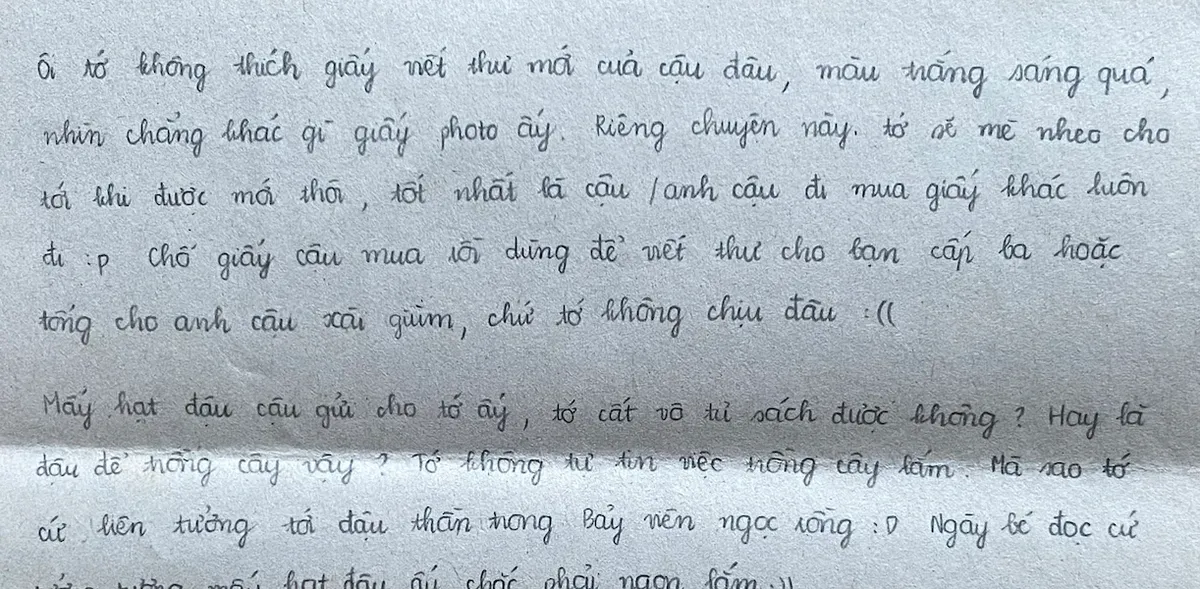 Ôi tớ không thích giấy viết thư mới của cậu đâu, màu trắng sáng quá,
nhìn chẳng khác gì giấy photo ấy. Riêng chuyện này. tớ sẽ mè nheo cho
tới khi được mới thôi, tốt nhất là cậu /anh cậu đi mua giấy khác luôn
đi :p Chỗ giấy cậu mua rồi dùng để viết thư cho bạn cấp ba hoặc
tống cho anh cậu xài giùm, chứ tớ không chịu đâu :((
Mấy hạt đậu cậu gửi cho tớ ấy, tớ cất vô tủ sách được không? Hay là
đậu để trồng cây vậy? Tớ không tự tin việc trồng cây lắm. Mà sao tớ
cứ liên tưởng tới đậu thần trong Bảy viên ngọc rồng :D Ngày bé đọc cứ
tưởng mấy hạt đậu ấy chắc phải ngon lắm :))